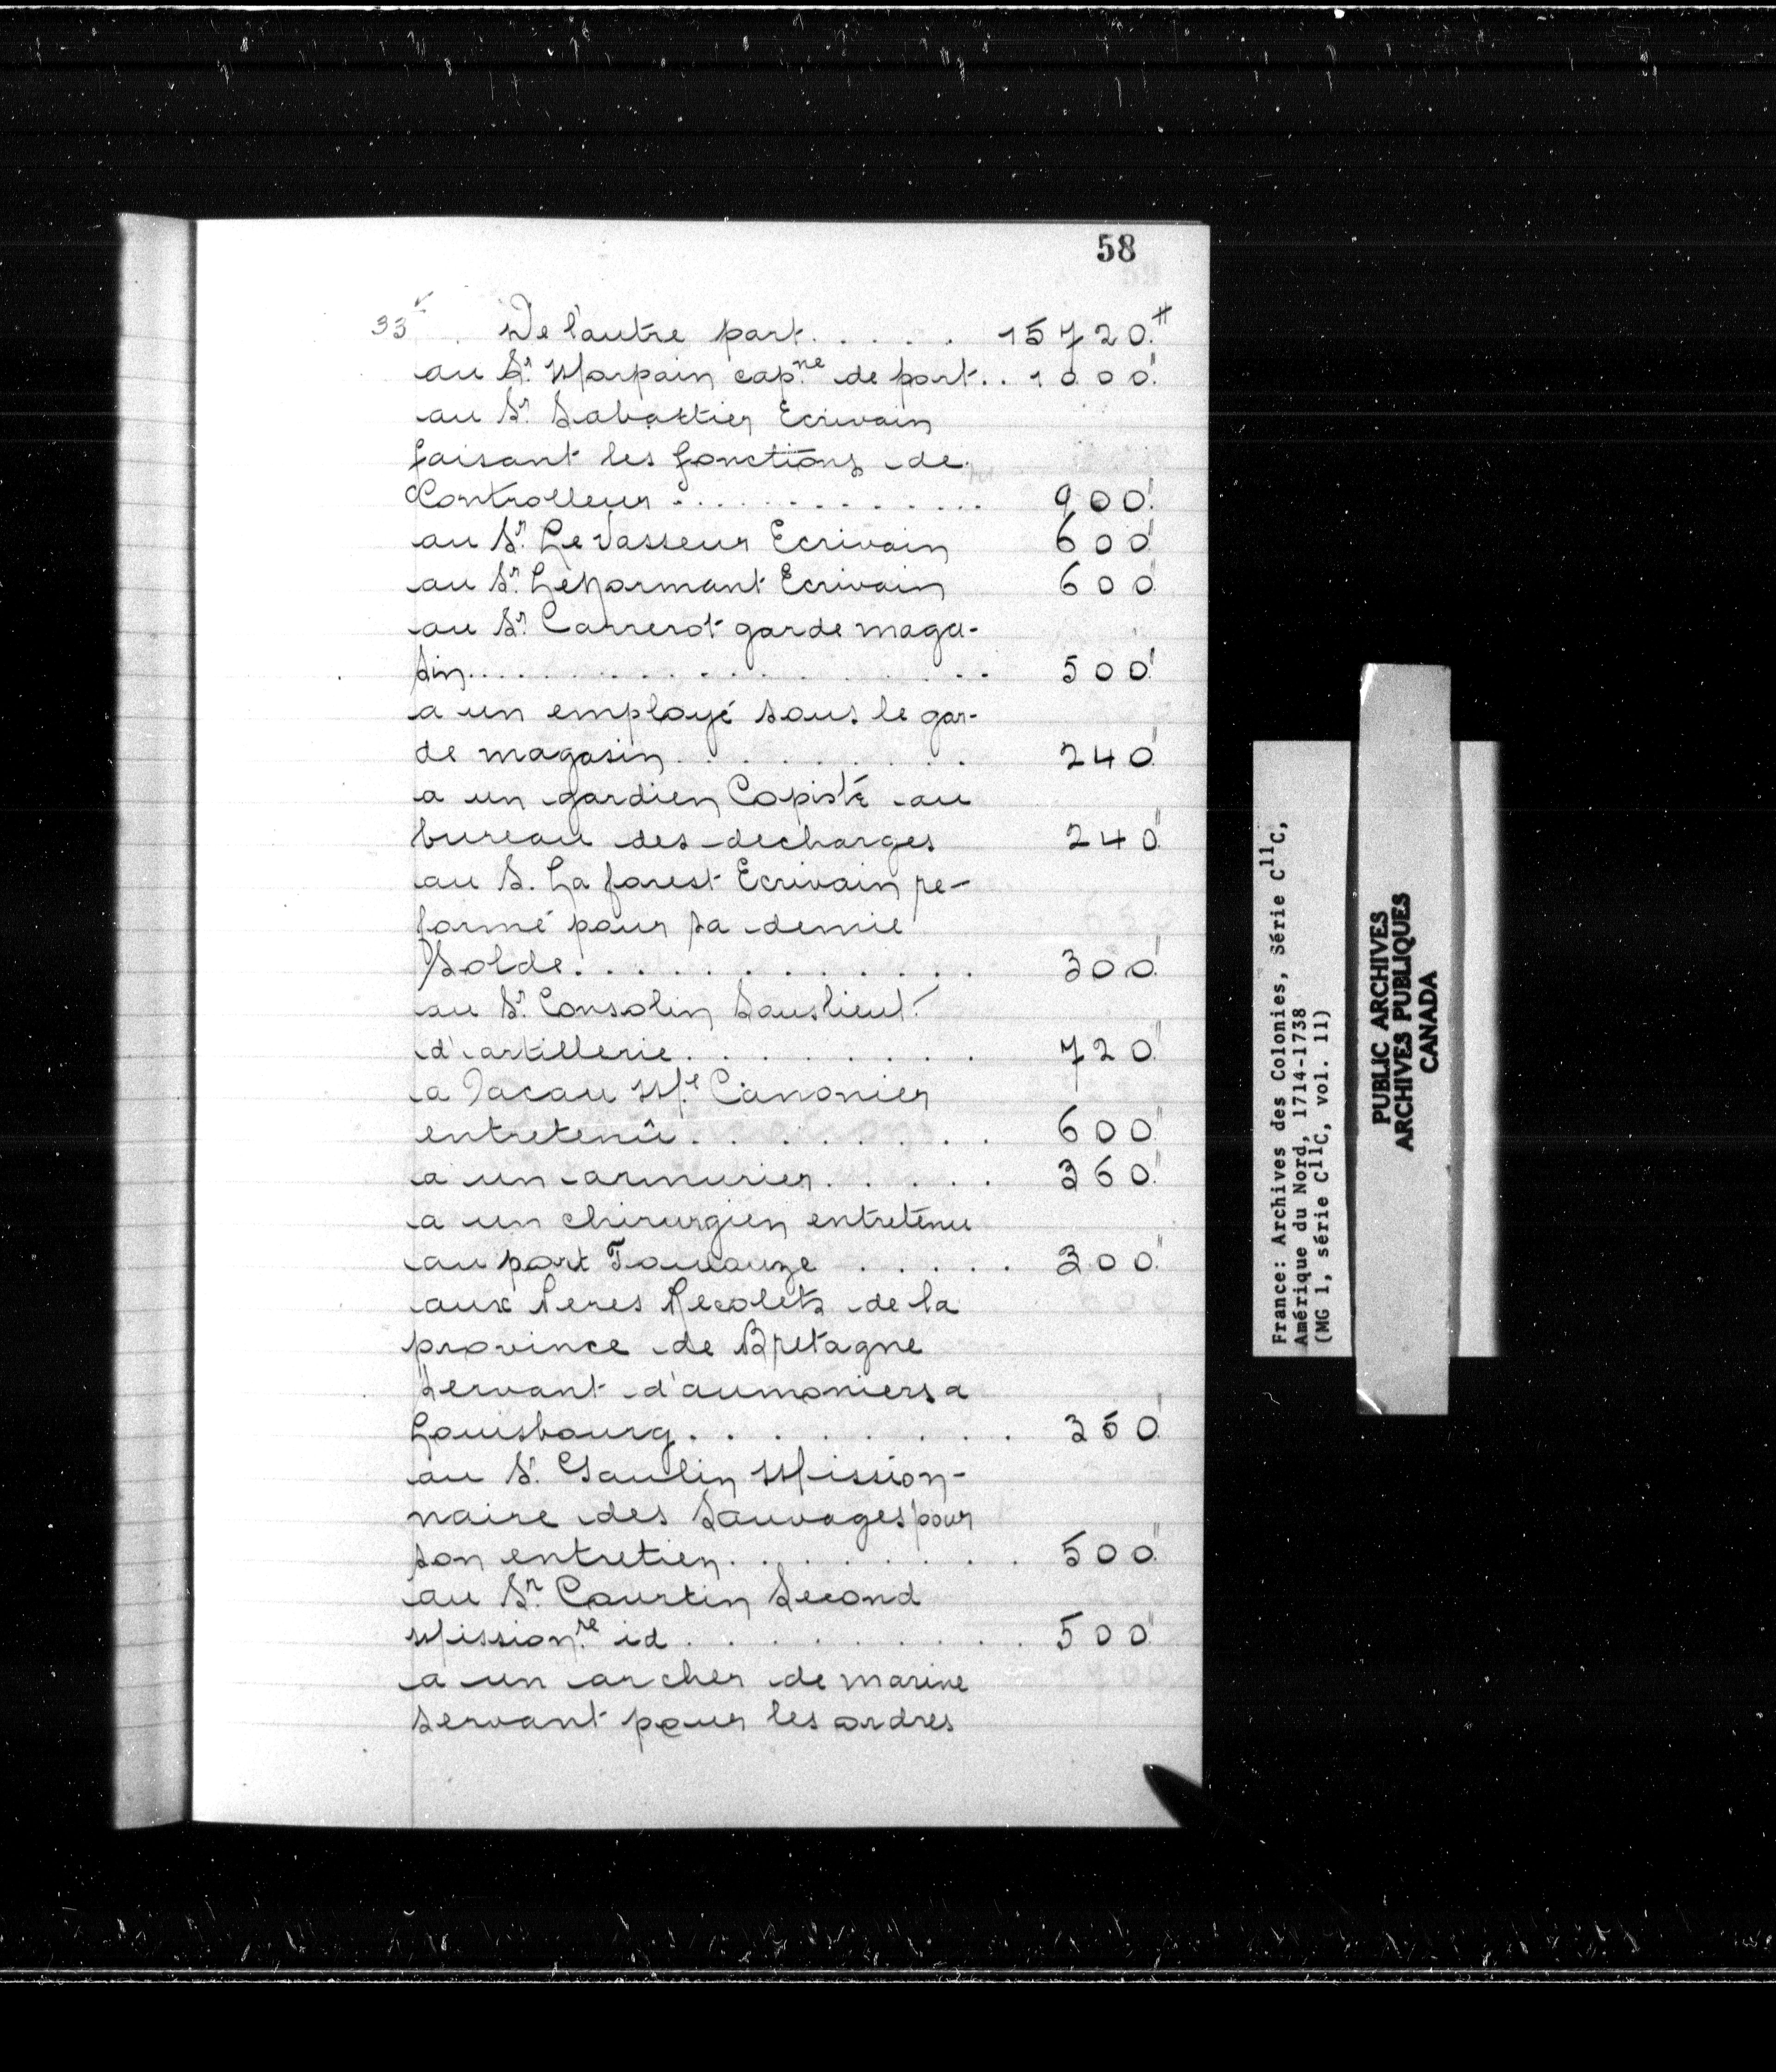 58
33ᵛ De l'autre part. . . . . 15720.#
au Sr. Morpain capne. de port. . 1000."
au Sr. Sabattier Ecrivain
faisant les fonctions de
Controlleur . . . . . . . . . . . . 900."
au Sr. Le Vasseur Ecrivain 600"
au Sr. LeNormant Ecrivain 600"
au Sr. Carrerot garde maga-
sin. . . . . . . . . . . . . . . . 500"
a un employé sous le gar-
de magasin. . . . . . . . . 240"
a un gardien Copiste au
bureau des decharges 240"
au S. La forest Ecrivain re-
formé pour sa demie
Solde. . . . . . . . . . . 300"
au Sr. Consolin Souslieut.
d'artillerie. . . . . . . . 720"
a Jacau Me Canonier
entretenû. . . . . . . . 600"
a un armurier. . . . . 360"
a un chirurgien entretenu
au port Toulouze . . . . . 300"
aux Peres Recolets de la
province de Bretagne
Servant d'aumoniers a
Louisbourg. . . . . . . . . 350"
au Sr. Gaulin Mission-
naire des Sauvages pour
son entretien. . . . . . . . 500"
au Sr. Courtin Second
Missionre. id. . . . . . . . . 500"
a un archer de marine
Servant pour les ordres
France: Archives des Colonies, Série C11C,
Amérique du Nord, 1714-1738
(MG 1, série C11C, vol. 11)
PUBLIC ARCHIVES
ARCHIVES PUBLIQUES
CANADA